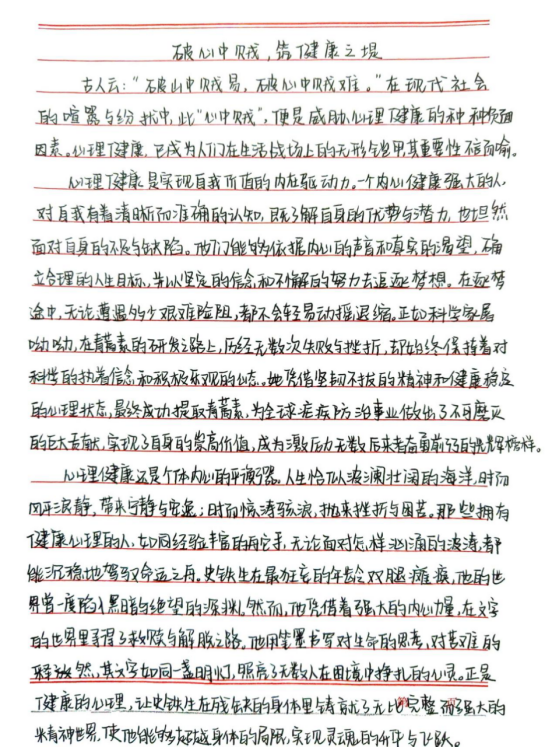 破心中贼,筑健康之堤
古人云:“破山中贼易,破心中贼难。”在现代社会
的喧嚣与纷扰中,此“心中贼”,便是威胁心理健康的种种负面
因素。心理健康,已成为人们在生活战场上的无形铠甲其重要性不言而喻。
心理健康是实现自我价值的内在驱动力。一个内心健康强大的人,
对自我有着清晰而准确的认知,既了解自身的优势与潜力,也坦然
面对自身的不足与缺陷。他们能够依据内心的声音和真实的渴望,确
立合理的人生目标,并以坚定的信念和不懈的努力去追逐梦想。在逐梦
途中,无论遭遇多少艰难险阻,都不会轻易动摇退缩。正如科学家屠
呦呦,在青蒿素的研发之路上,历经无数次失败与挫折,却始终保持着对
科学的执着信念和积极乐观的心态。她凭借坚韧不拔的精神和健康稳定
的心理状态,最终成功提取青蒿素,为全球疟疾防治事业做出了不可磨灭
的巨大贡献,实现了自身的崇高价值,成为激励无数后来者奋勇前行的光辉榜样。
心理健康还是个体内心的平衡器。人生恰似波澜壮阔的海洋,时而
风平浪静,带来宁静与安逸;时而惊涛骇浪,抛来挫折与困苦。那些拥有
健康心理的人,如同经验丰富的舵手,无论面对怎样汹涌的波涛,都
能沉稳地驾驭命运之舟。史铁生在最狂妄的年龄双腿瘫痪,他的世
界曾一度陷入黑暗与绝望的深渊。然而,他凭借着强大的内心力量,在文字
的世界里寻得了救赎与解脱之路。他用笔墨书写对生命的思考,对苦难的
释然,其文字如同一盏明灯,照亮了无数人在困境中挣扎的心灵。正是
健康的心理,让史铁生在残缺的身体里铸就了无比完整而强大的
精神世界,使他能够超越身体的局限,实现灵魂的升华与飞跃。